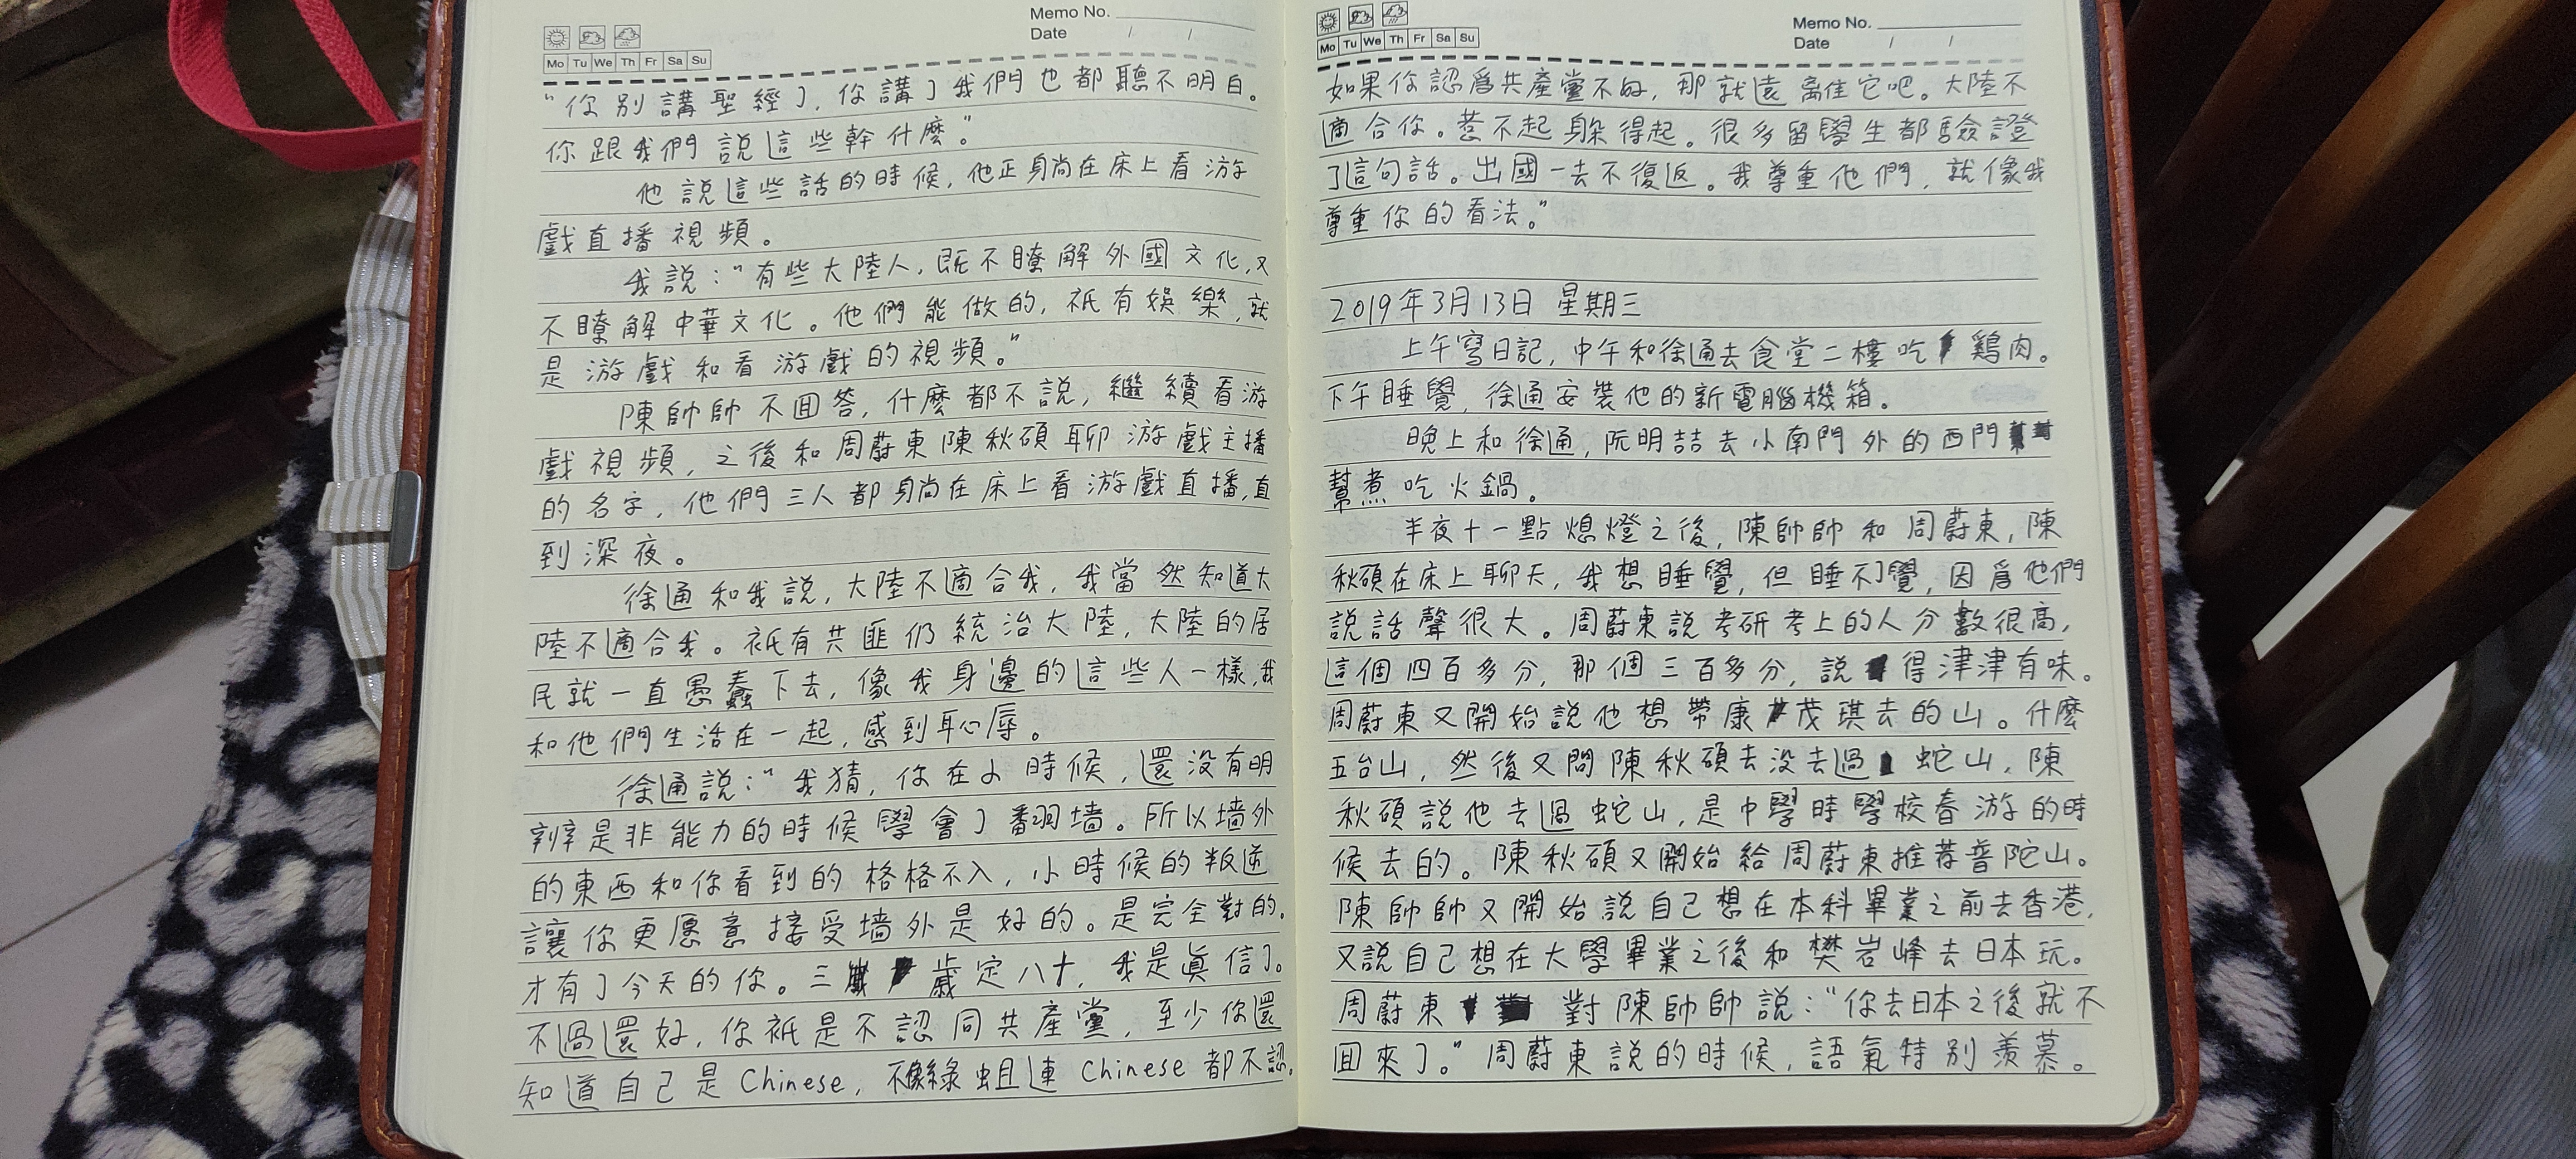 Memo No.
Date / /
Mo Tu We Th Fr Sa Su
“你别講聖經了，你講了我們也都聽不明白。
你跟我們説這些幹什麽。”
他説這些話的時候，他正躺在床上看游
戲直播視頻。
我説：“有些大陸人，既不瞭解外國文化，又
不瞭解中華文化。他們能做的，衹有娛樂，就
是游戲和看游戲的視頻。”
陳帥帥不回答，什麽都不説，繼續看游
戲視頻，之後和周蔚東陳秋碩聊游戲主播
的名字，他們三人都躺在床上看游戲直播，直
到深夜。
徐通和我説，大陸不適合我，我當然知道大
陸不適合我。衹有共匪仍統治大陸，大陸的居
民就一直愚蠢下去，像我身邊的這些人一樣，我
和他們生活在一起，感到恥辱。
徐通説：“我猜，你在小時候，還没有明
辨是非能力的時候學會了翻墙。所以墙外
的東西和你看到的格格不入，小時候的叛逆
讓你更愿意接受墙外是好的。是完全對的。
才有了今天的你。三歲定八十，我是真信了。
不過還好，你衹是不認同共產黨，至少你還
知道自己是Chinese，不像綠蛆連Chinese都不認。
Memo No.
Date / /
Mo Tu We Th Fr Sa Su
如果你認爲共產黨不好，那就遠離它吧。大陸不
適合你。惹不起躲得起。很多留學生都驗證
了這句話。出國一去不復返。我尊重他們，就像我
尊重你的看法。”
2019年3月13日 星期三
上午寫日記，中午和徐通去食堂二樓吃鷄肉。
下午睡覺，徐通安裝他的新電腦機箱。
晚上和徐通，阮明喆去小南門外的西門
幫煮吃火鍋。
半夜十一點熄燈之後，陳帥帥和周蔚東，陳
秋碩在床上聊天，我想睡覺，但睡不覺，因爲他們
説話聲很大。周蔚東説考研考上的人分數很高，
這個四百多分，那個三百多分，説得津津有味。
周蔚東又開始説他想帶康茂琪去的山。什麽
五台山，然後又問陳秋碩去没去過蛇山，陳
秋碩説他去過蛇山，是中學時學校春游的時
候去的。陳秋碩又開始給周蔚東推荐普陀山。
陳帥帥又開始説自己想在本科畢業之前去香港，
又説自己想在大學畢業之後和樊岩峰去日本玩。
周蔚東對陳帥帥説：“你去日本之後就不
回來了。”周蔚東説的時候，語氣特别羨慕。